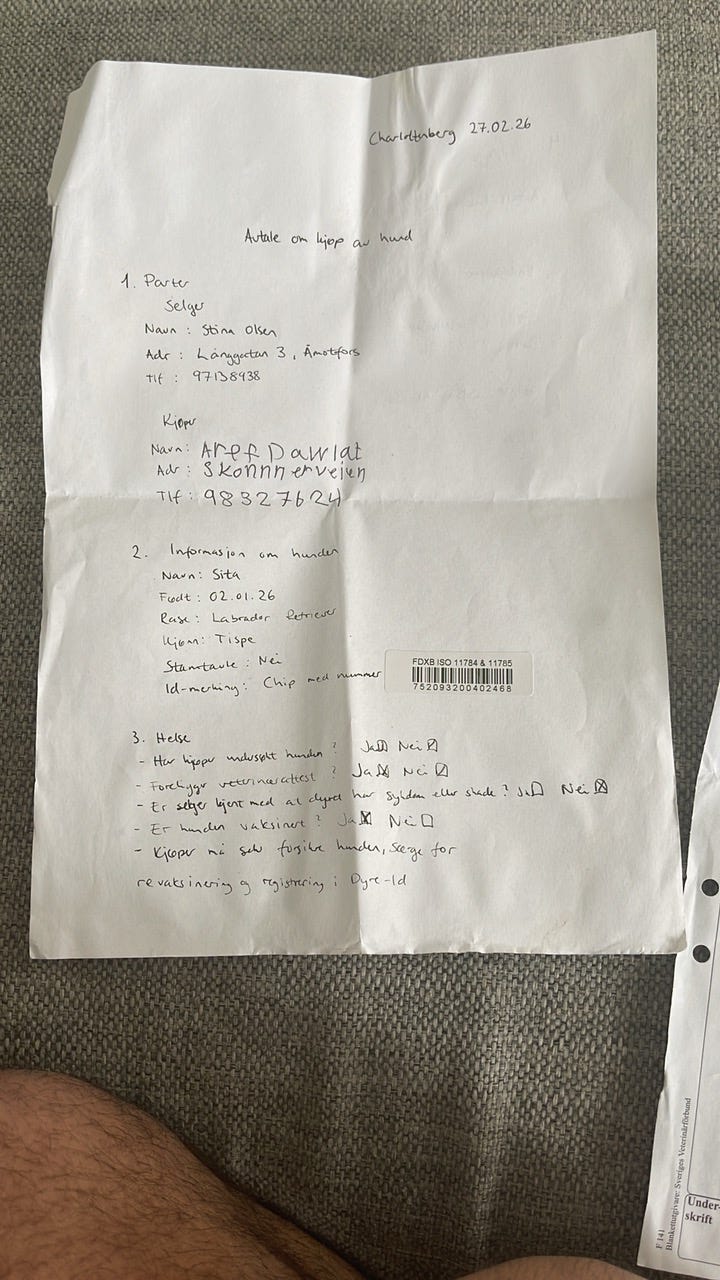 Charlottenberg 27.02.26
Avtale om kjøp av hund
1. Parter
Selger
Navn : Stina Olsen
Adr : Långgatan 3, Åmotsfors
Tlf : 97138938
Kjøper
Navn: Aref Dawlat
Adr : Skonnnerveien
Tlf : 98327624
2. Informasjon om hunden
Navn: Sita
Født : 02.01.26
Rase: Labrador Retriever
Kjønn: Tispe
Stamtavle : Nei
Id-merking: Chip med nummer
FDXB ISO 11784 & 11785
752093200402468
3. Helse
- Har kjøper undersøkt hunden ? Ja☐ Nei☒
- Foreligger veterinærattest ? Ja☒ Nei☐
- Er selger kjent med at dyret har sykdom eller skade ? Ja☐ Nei☒
- Er hunden vaksinert ? Ja☒ Nei☐
- Kjøper må selv forsikre hunden, sørge for
revaksinering og registrering i Dyre-Id
F 141
Blankettutgivare: Sveriges Veterinärförbund
Under-
skrift